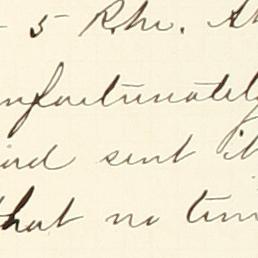 - 5 Rhr. Ah
nfortunately
ird sent it
that no tim